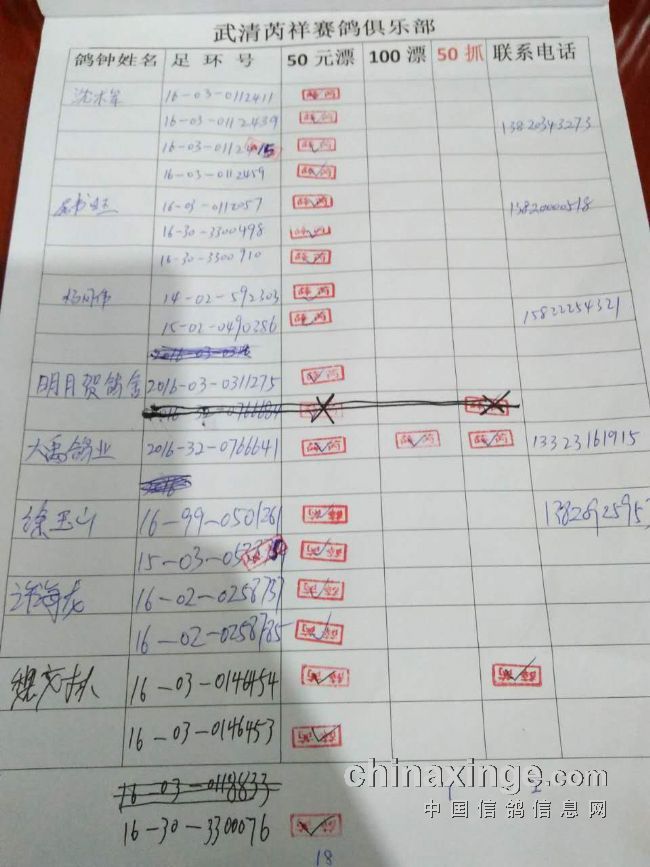 武清芮祥赛鸽俱乐部
鸽钟姓名 足环号 50元漂 100漂 50抓 联系电话
16-03-0112411
16-03-0112439 13820343273
16-03-01124 15
16-03-0112459
16-03-0112057 13820000518
16-30-3300498
16-30-3300910
14-02-592303
15-02-0490386 15822254321
明月贺鸽舍 2016-03-0311275
大禹鸽业 2016-32-0766641 13323161915
徐玉山 16-99-0501261
15-03-05
许海龙 16-02-0258737
16-02-0258785
16-03-0146454
16-03-0146453
16-03-0118833
16-30-3300076
18
chinaxinge.com
中国信鸽信息网